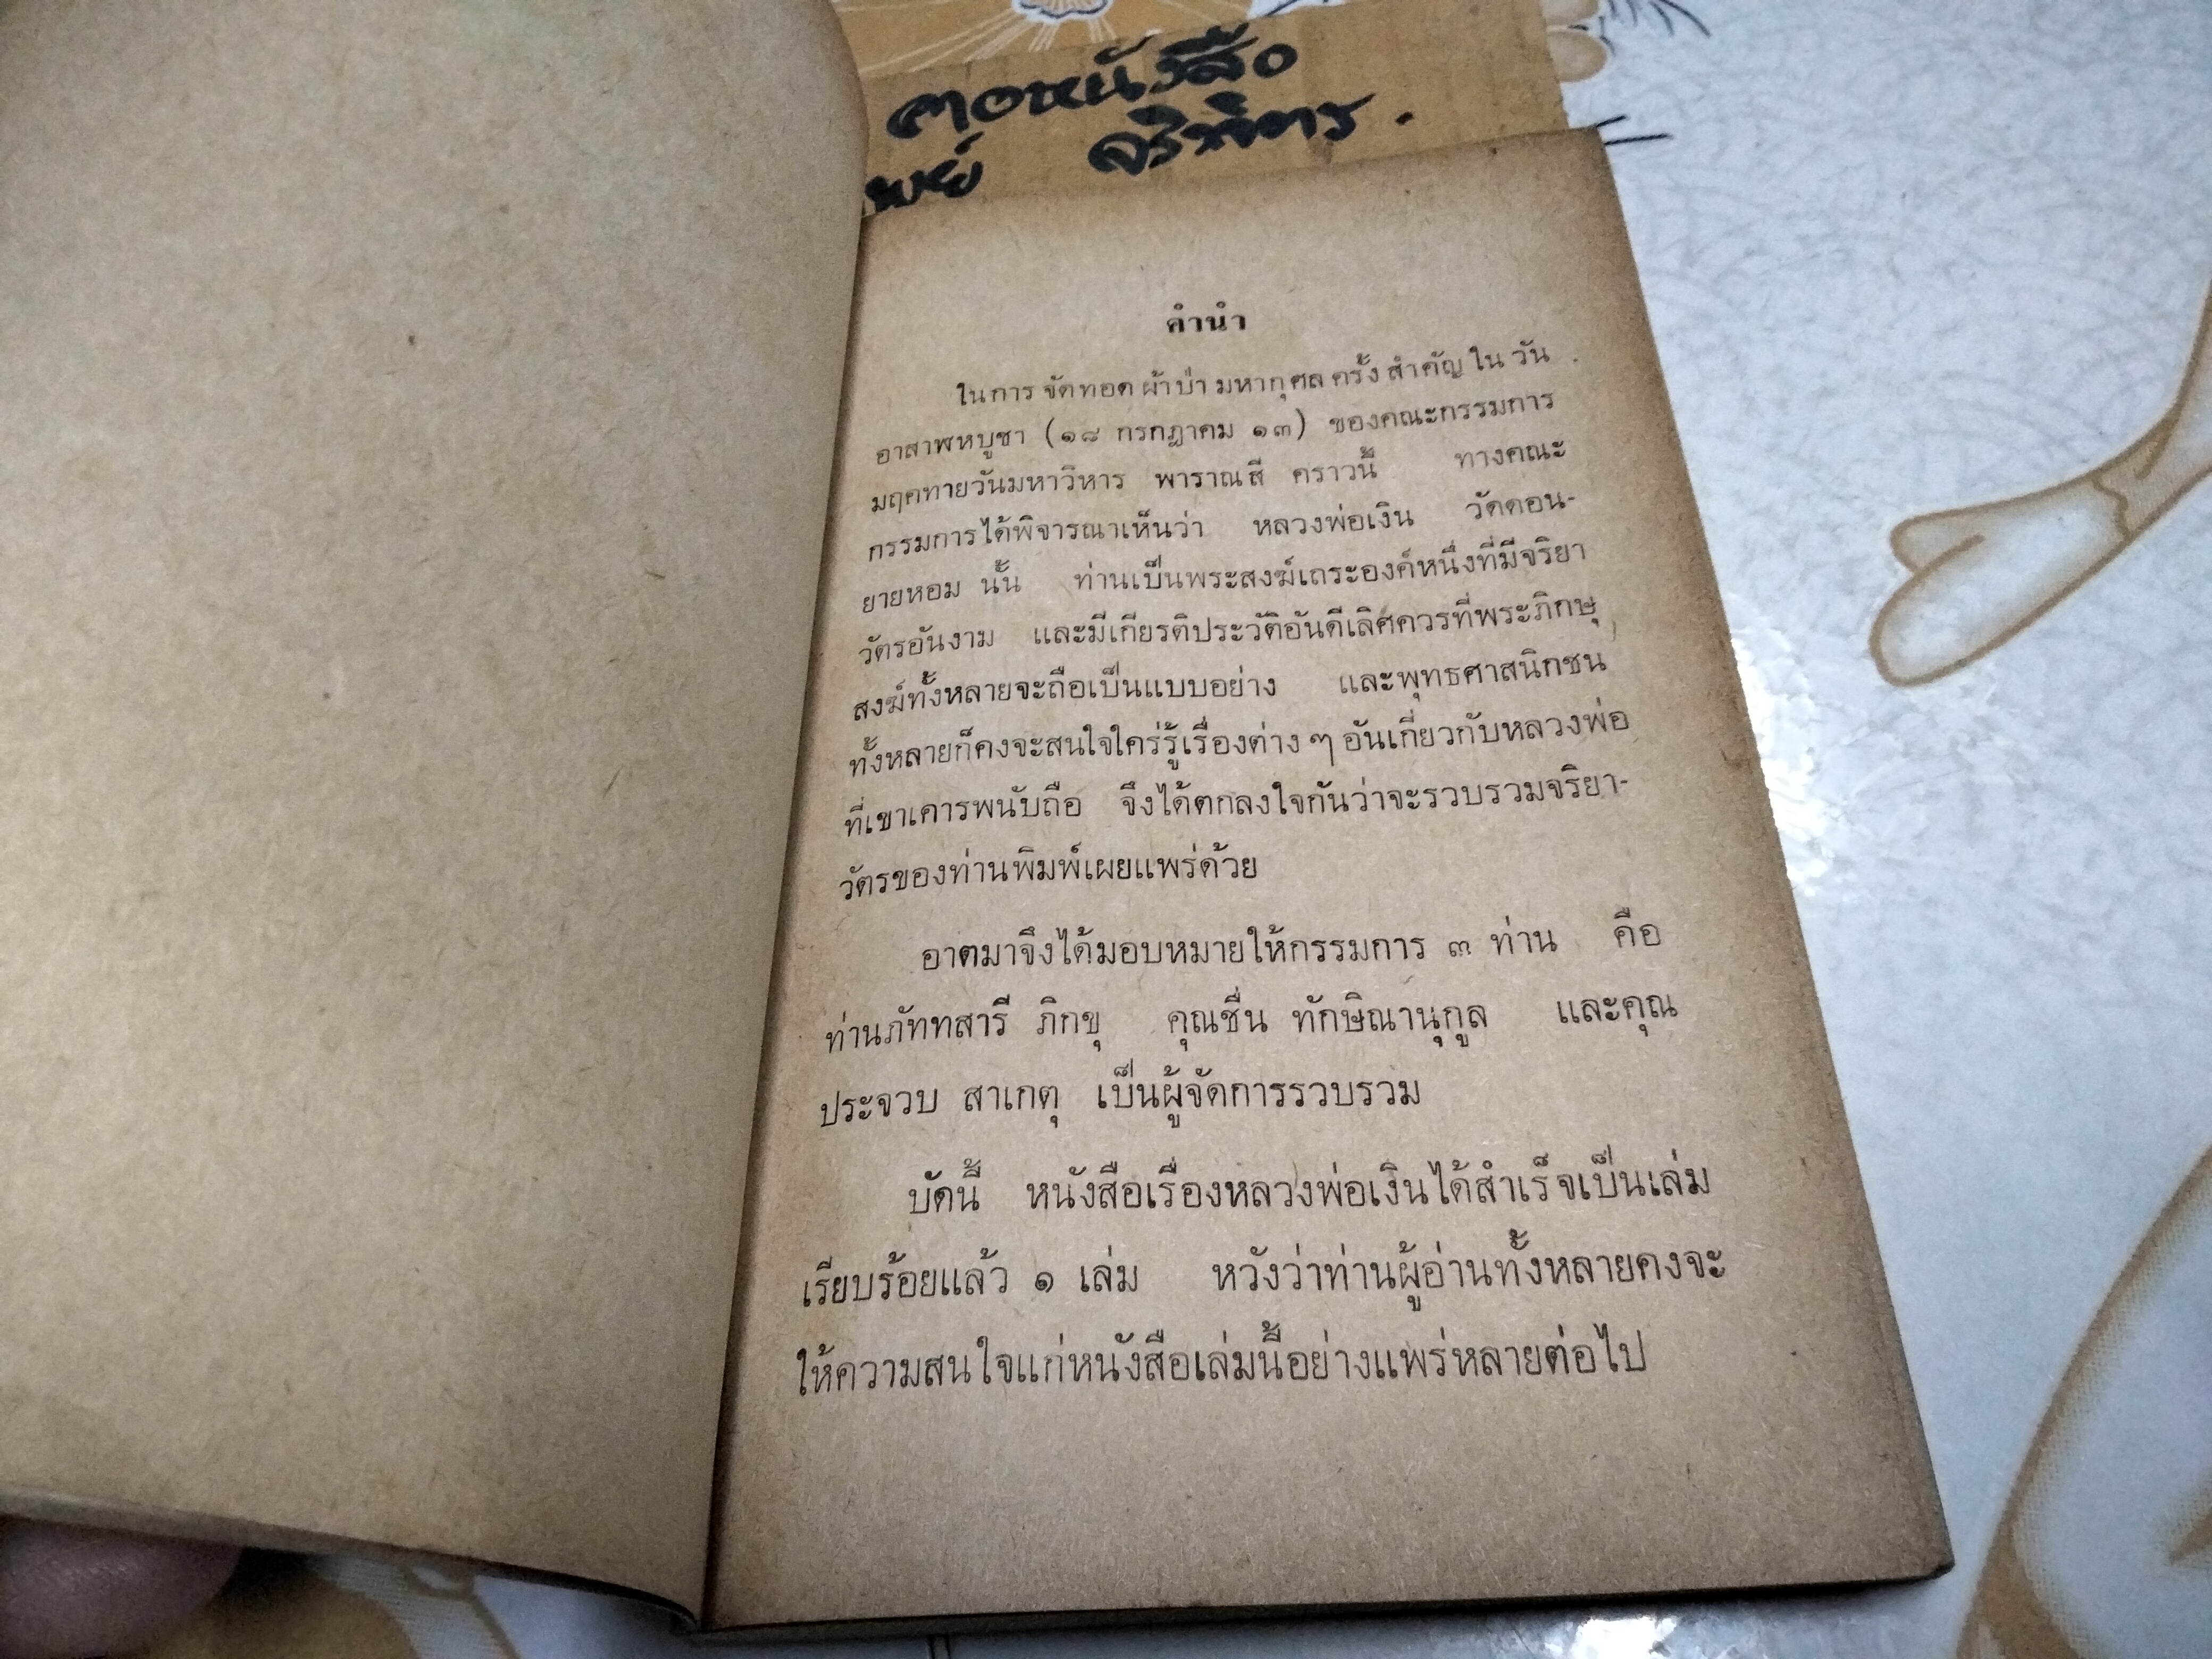 คอหนังสือ
จริพัทร.
คำนำ
ในการ จัดทอด ผ้าป่า มหากุศล ครั้ง สำคัญ ใน วัน
อาสาฬหบูชา (๑๘ กรกฎาคม ๑๓) ของคณะกรรมการ
มฤคทายวันมหาวิหาร พาราณสี คราวนี้ ทางคณะ
กรรมการได้พิจารณาเห็นว่า หลวงพ่อเงิน วัดดอน-
ยายหอม นั้น ท่านเป็นพระสงฆ์เถระองค์หนึ่งที่มีจริยา
วัตรอันงาม และมีเกียรติประวัติอันดีเลิศควรที่พระภิกษุ
สงฆ์ทั้งหลายจะถือเป็นแบบอย่าง และพุทธศาสนิกชน
ทั้งหลายก็คงจะสนใจใคร่รู้เรื่องต่าง ๆ อันเกี่ยวกับหลวงพ่อ
ที่เขาเคารพนับถือ จึงได้ตกลงใจกันว่าจะรวบรวมจริยา-
วัตรของท่านพิมพ์เผยแพร่ด้วย
อาตมาจึงได้มอบหมายให้กรรมการ ๓ ท่าน คือ
ท่านภัททสารี ภิกขุ คุณชื่น ทักษิณานุกูล และคุณ
ประจวบ สาเกตุ เป็นผู้จัดการรวบรวม
บัดนี้ หนังสือเรื่องหลวงพ่อเงินได้สำเร็จเป็นเล่ม
เรียบร้อยแล้ว ๑ เล่ม หวังว่าท่านผู้อ่านทั้งหลายคงจะ
ให้ความสนใจแก่หนังสือเล่มนี้อย่างแพร่หลายต่อไป